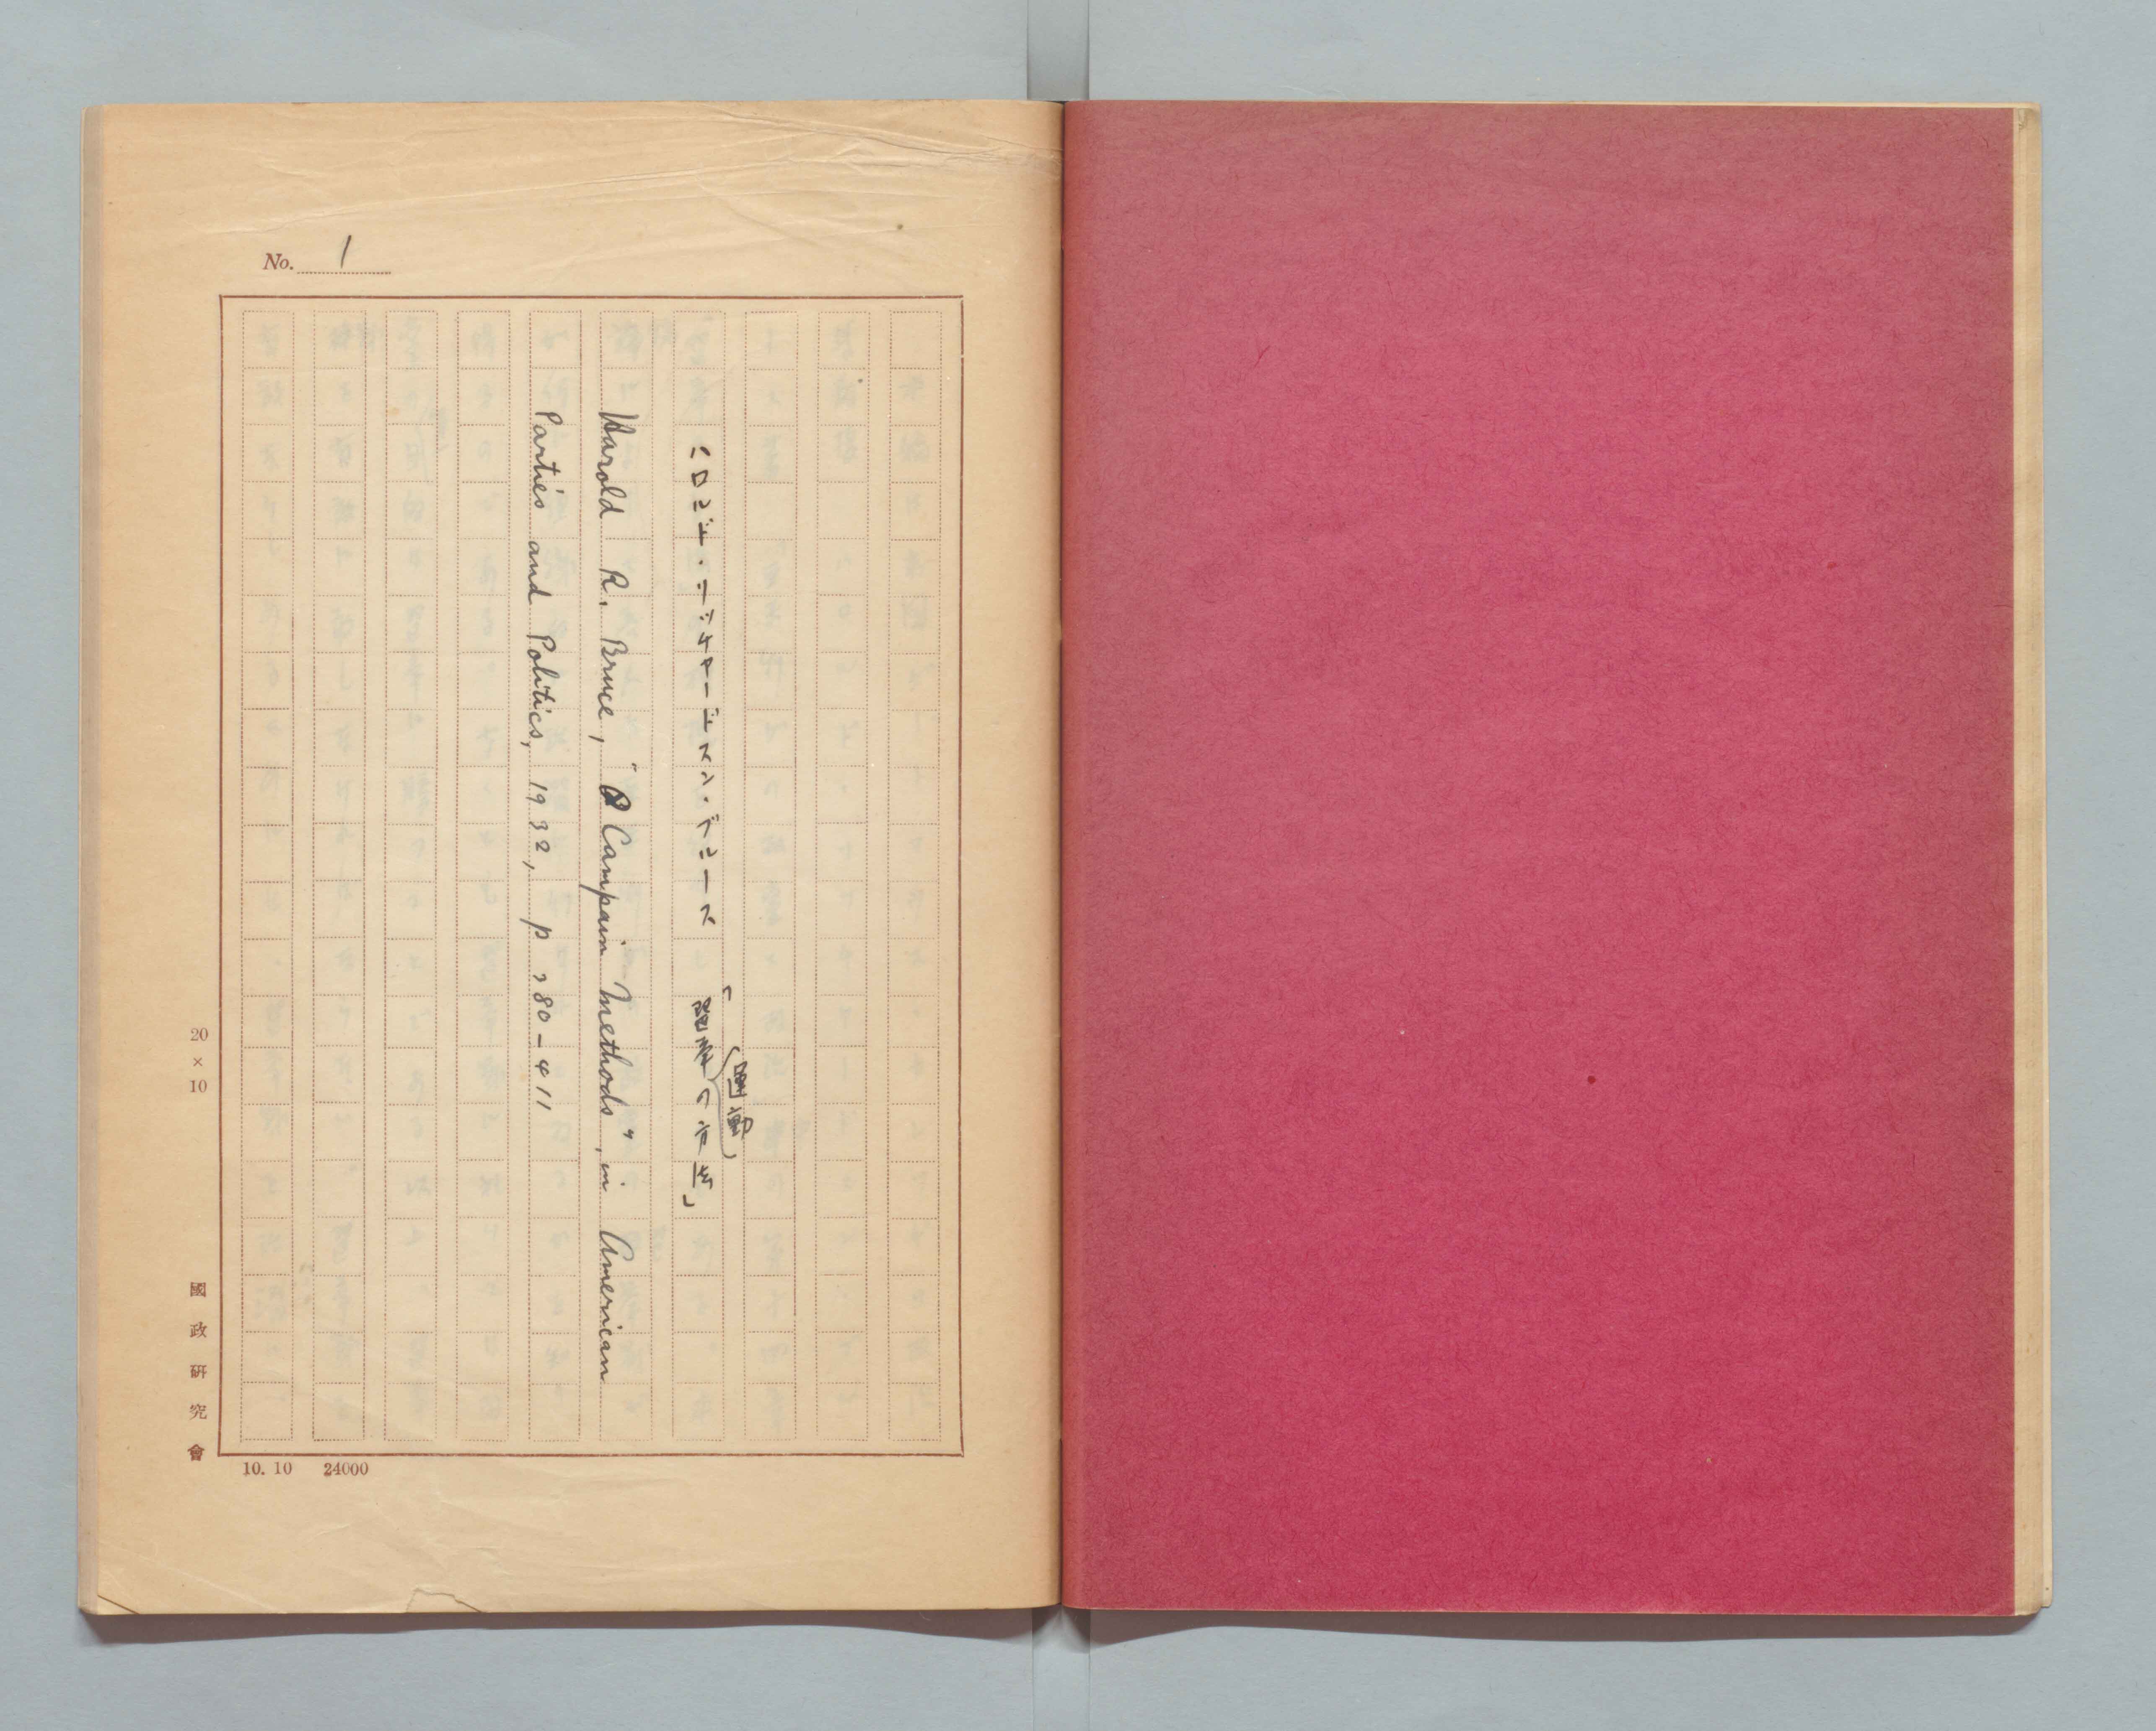 No. 1
ハロルド・リッチャードスン・ブルース 「選挙の方法」
(運動)
Harold R. Bruce, "Campain Methods", in American
Parties and Politics, 1932, p 380-411
20×10
國政研究會
10.10 24000